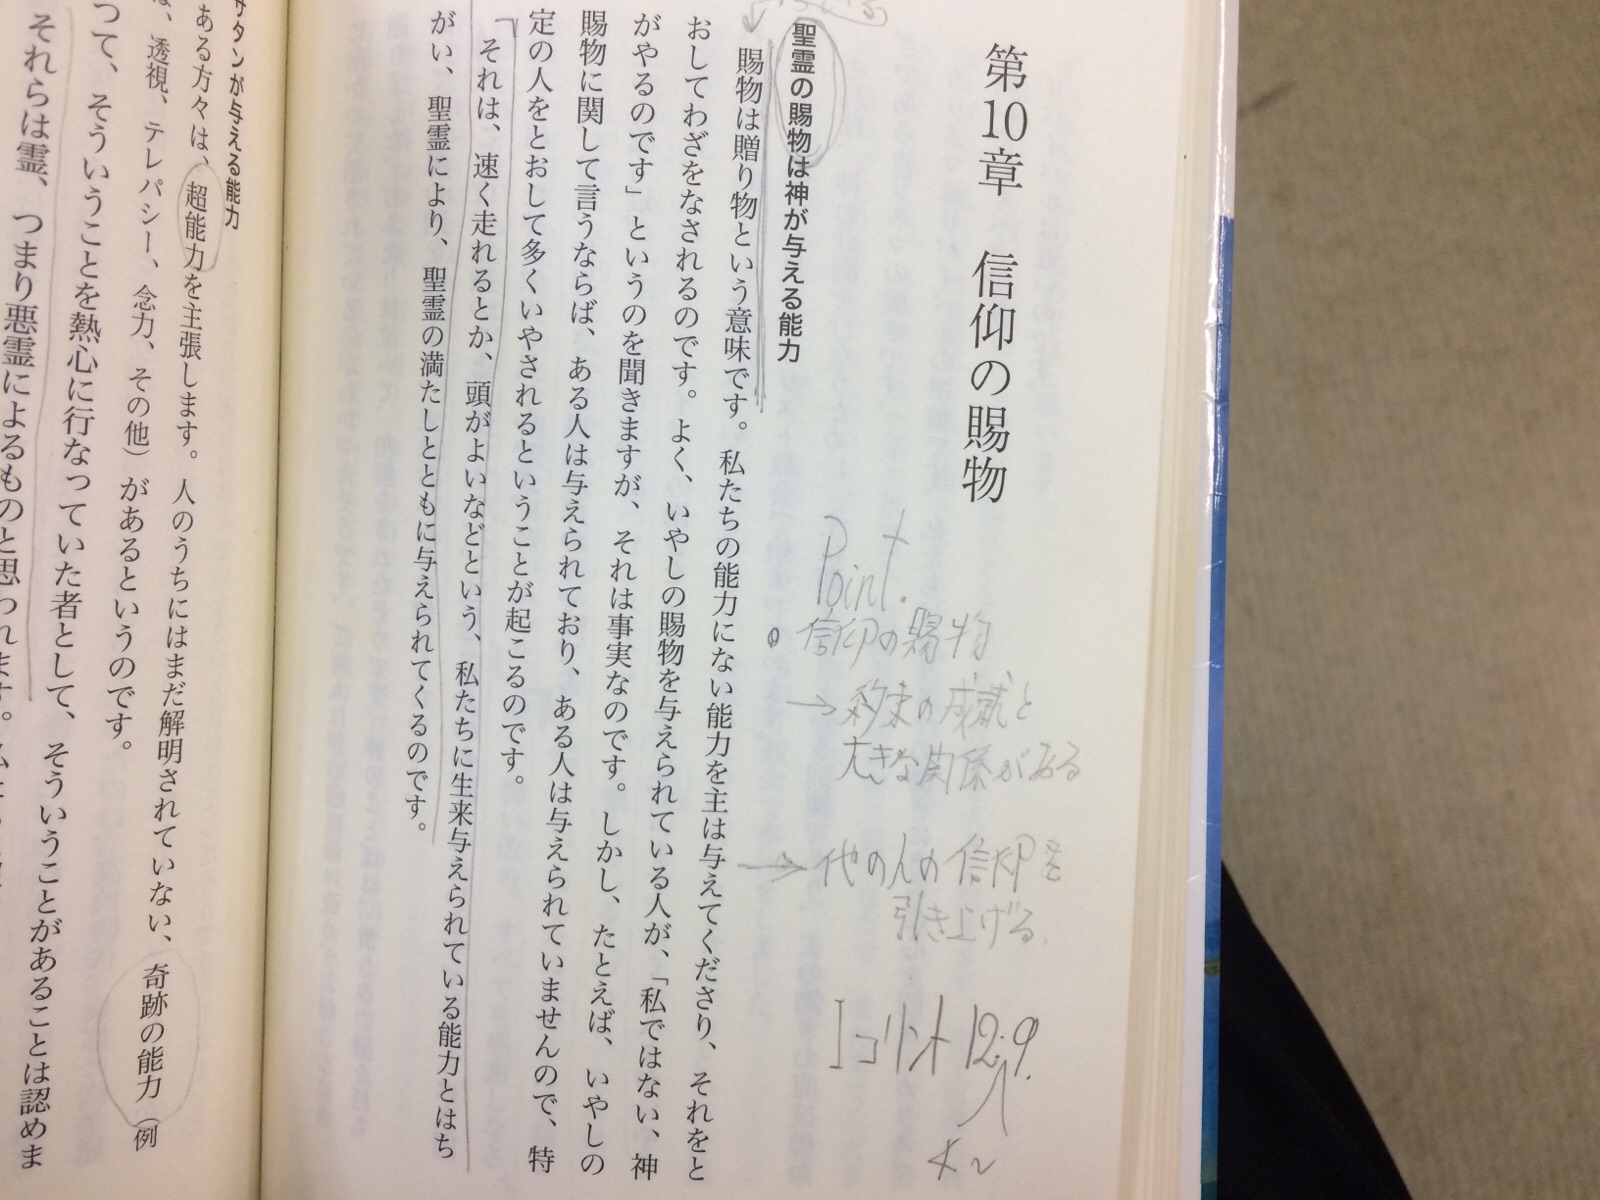 第10章 信仰の賜物
Point.
信仰の賜物
→ 約束の成就と
大きな関係がある
→ 他の人の信仰を
引き上げる.
Iコリント 12:9.
聖霊の賜物は神が与える能力
賜物は贈り物という意味です。私たちの能力にない能力を主は与えてくださり、それをと
おしてわざをなされるのです。よく、いやしの賜物を与えられている人が、「私ではない、神
がやるのです」というのを聞きますが、それは事実なのです。しかし、たとえば、いやしの
賜物に関して言うならば、ある人は与えられており、ある人は与えられていませんので、特
定の人をとおして多くいやされるということが起こるのです。
それは、速く走れるとか、頭がよいなどという、私たちに生来与えられている能力とはち
がい、聖霊により、聖霊の満たしとともに与えられてくるのです。
サタンが与える能力
ある方々は、超能力を主張します。人のうちにはまだ解明されていない、奇跡の能力(例
ば、透視、テレパシー、念力、その他)があるというのです。
って、そういうことを熱心に行なっていた者として、そういうことがあることは認めま
それらは霊、つまり悪霊によるものと思われます。